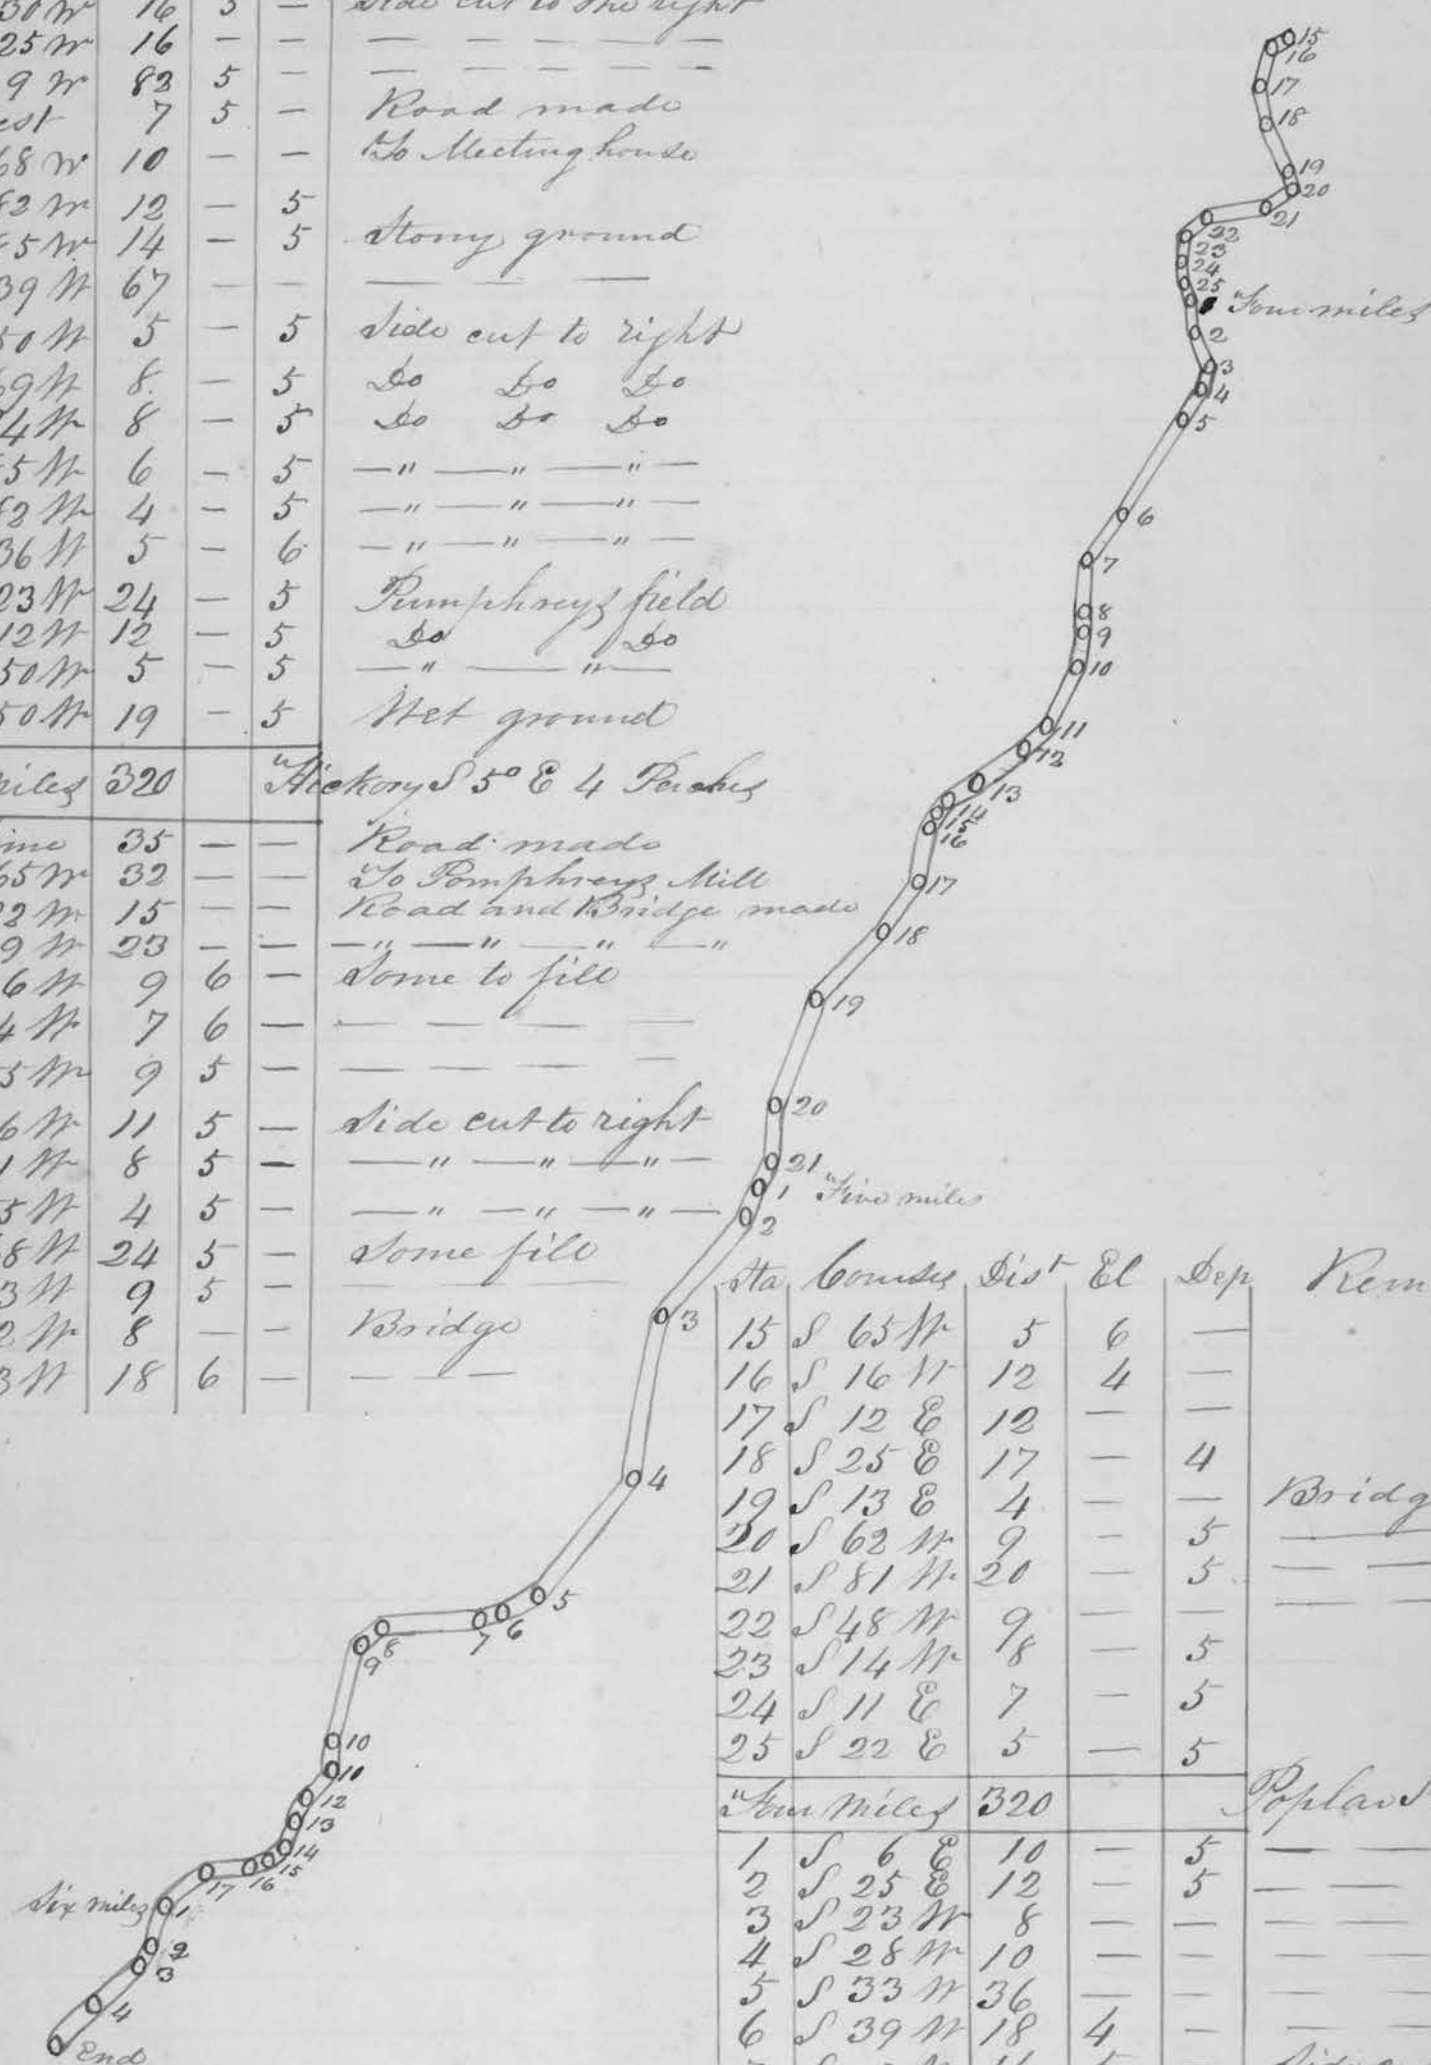 30 W 16 5 — Side cut to the right
25 W 16 — — — — — — — —
9 W 83 5 — — — — — — —
est 7 5 — Road made
68 W 10 — — To Meeting house
82 W 12 — 5
5 W 14 — 5 Stony ground
39 W 67 — — — — —
50 W 5 — 5 Side cut to right
69 W 8 — 5 Do Do Do
4 W 8 — 5 Do Do Do
5 W 6 — 5 —"—"—"—
82 W 4 — 5 —"—"—"—
36 W 5 — 6 —"—"—"—
23 W 24 — 5 Pumphreys field
12 W 12 — 5 Do Do
50 W 5 — 5 —"—"—
50 W 19 — 5 Wet ground
miles 320 Hickory S 5° E 4 Perches
ine 35 — — Road made
65 W 32 — — To Pomphreys Mill
2 W 15 — — Road and Bridge made
9 W 23 — — —"—"—"—"
6 W 9 6 — Some to fill
4 W 7 6 — — — — —
5 W 9 5 — — — — — —
6 W 11 5 — Side cut to right
1 W 8 5 — —"—"—"—
5 W 4 5 — —"—"—"—
8 W 24 5 — Some fill
3 W 9 5 — — — —
2 W 8 — — Bridge
3 W 18 6 — — — —
15
16
17
18
19
20
21
22
23
24
25
Four miles
2
3
4
5
6
7
8
9
10
11
12
13
14
15
16
17
18
19
20
21
1 Five miles
2
3
4
5
6
7
8
9
10
10
12
13
14
15
16
17
Six miles 1
2
3
4
End
Sta Courses Dist El Dep Rem
15 S 65 W 5 6 —
16 S 16 W 12 4 —
17 S 12 E 12 — —
18 S 25 E 17 — 4
19 S 13 E 4 — — Bridg
20 S 62 W 9 — 5 —
21 S 81 W 20 — 5 — —
22 S 48 W 9 — — — —
23 S 14 W 8 — 5
24 S 11 E 7 — 5
25 S 22 E 5 — 5
Four Miles 320 Poplar S
1 S 6 E 10 — 5 — —
2 S 25 E 12 — 5 — —
3 S 23 W 8 — — — —
4 S 28 W 10 — — — —
5 S 33 W 36 — — — —
6 S 39 W 18 4 — — —